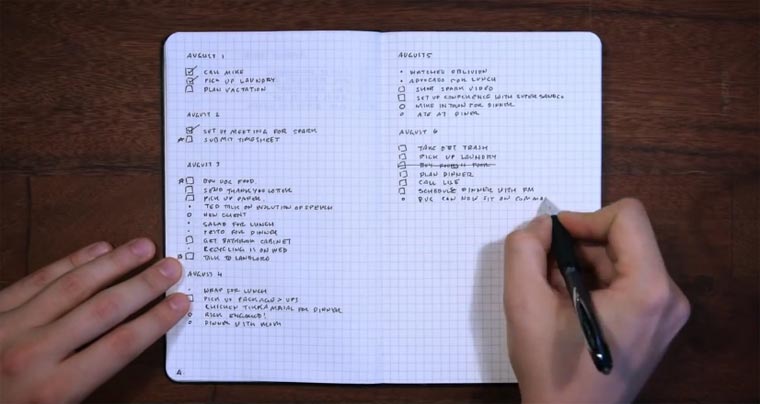 AUGUST 1
CALL MIKE
PICK UP LAUNDRY
PLAN VACTATION
AUGUST 2
SET UP MEETING FOR SPARK
SUBMIT TIMESHEET
AUGUST 3
BUY DOG FOOD
SEND THANK YOU LETTER
PICK UP PAPER
TED TALK ON EVOLUTION OF SPEECH
NEW CLIENT
SALAD FOR LUNCH
PESTO FOR DINNER
GET BATHROOM CABINET
RECYCLING IS ON WED
TALK TO LANDLORD
AUGUST 4
WRAP FOR LUNCH
PICK UP PACKAGE UPS
CHICKEN TIKKA MASALA FOR DINNER
RICK ENGAGED!
DINNER WITH
A.
AUGUST 5
WATCHED OBLIVION
AVOCADO FOR LUNCH
SPARK VIDEO
SET UP CONFERENCE WITH
MIKE IN TOWN FOR DINNER
ATE AT DINER
AUGUST 6
TAKE OUT TRASH
PICK UP LAUNDRY
BUY
PLAN DINNER
CALL LISE
SCHEDULE DINNER WITH EM
CAN NOW SIT ON COMMA